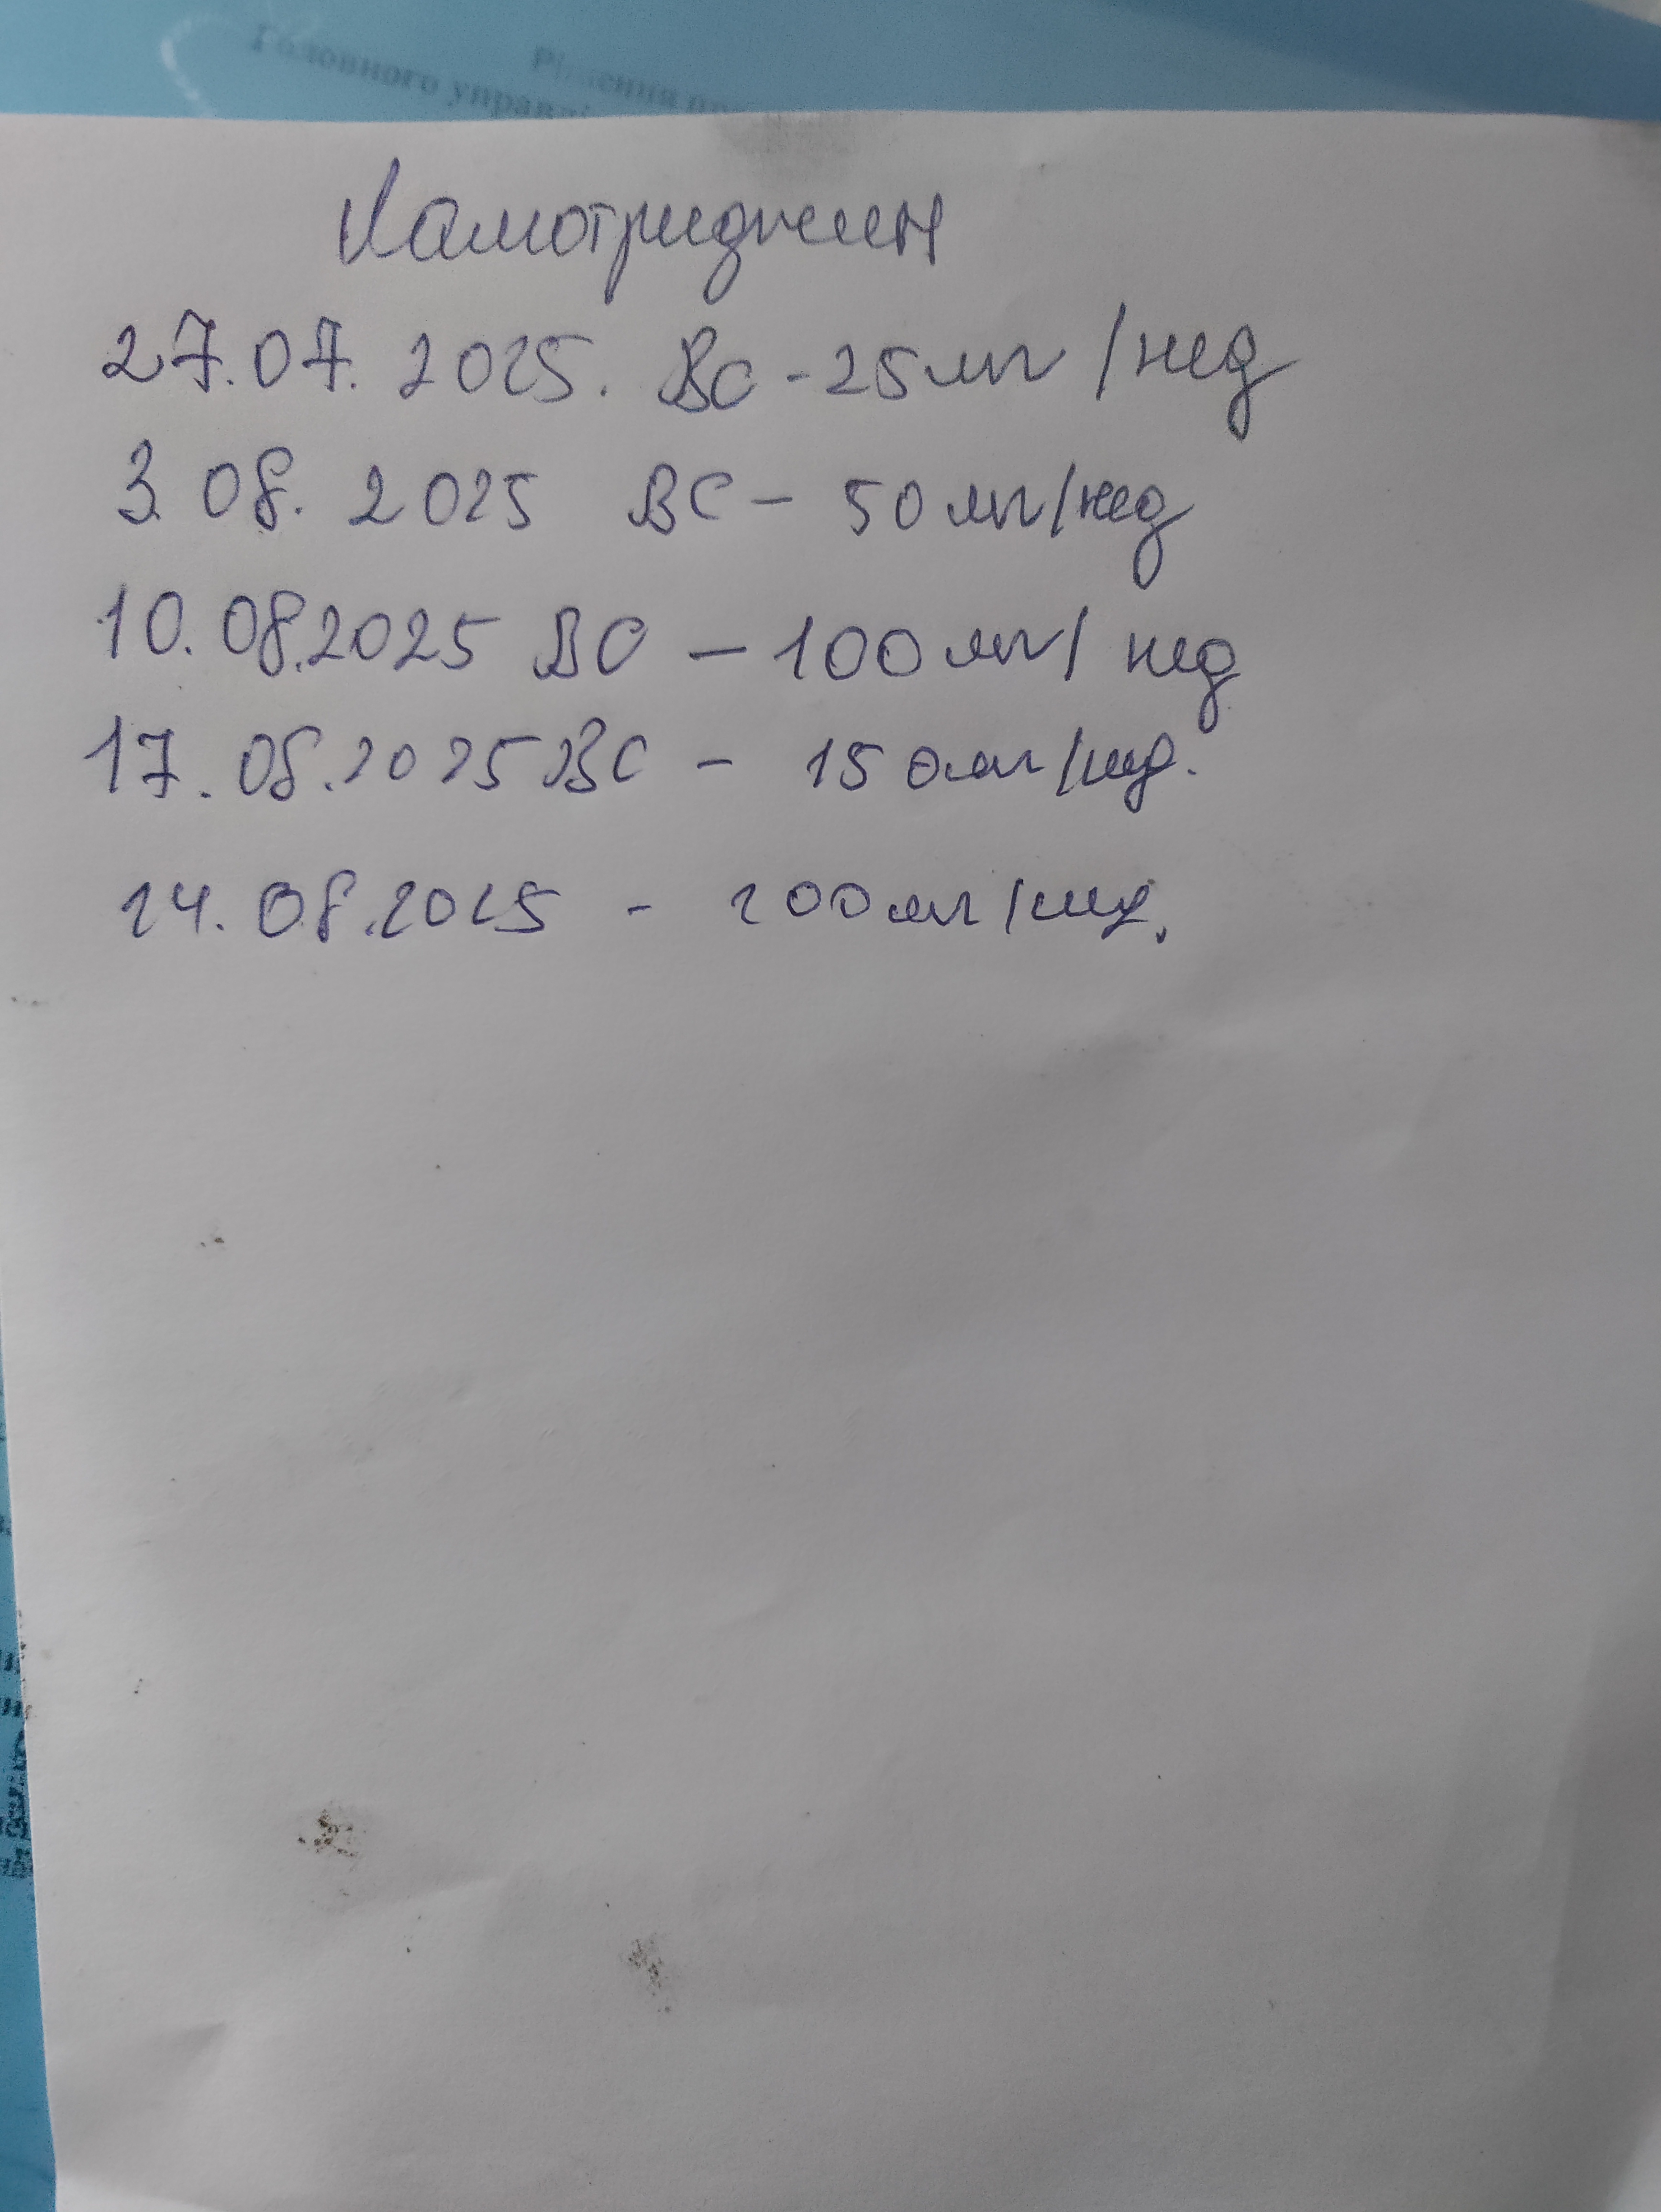 Рішення
Головного управлі
Ламотриджин
27.07.2025. ВС - 25 мг /нед
3.08.2025 ВС - 50 мг/нед
10.08.2025 ВС - 100 мг/ нед
17.08.2025 ВС - 150 мг/нед.
24.08.2025 - 200 мг/нед.